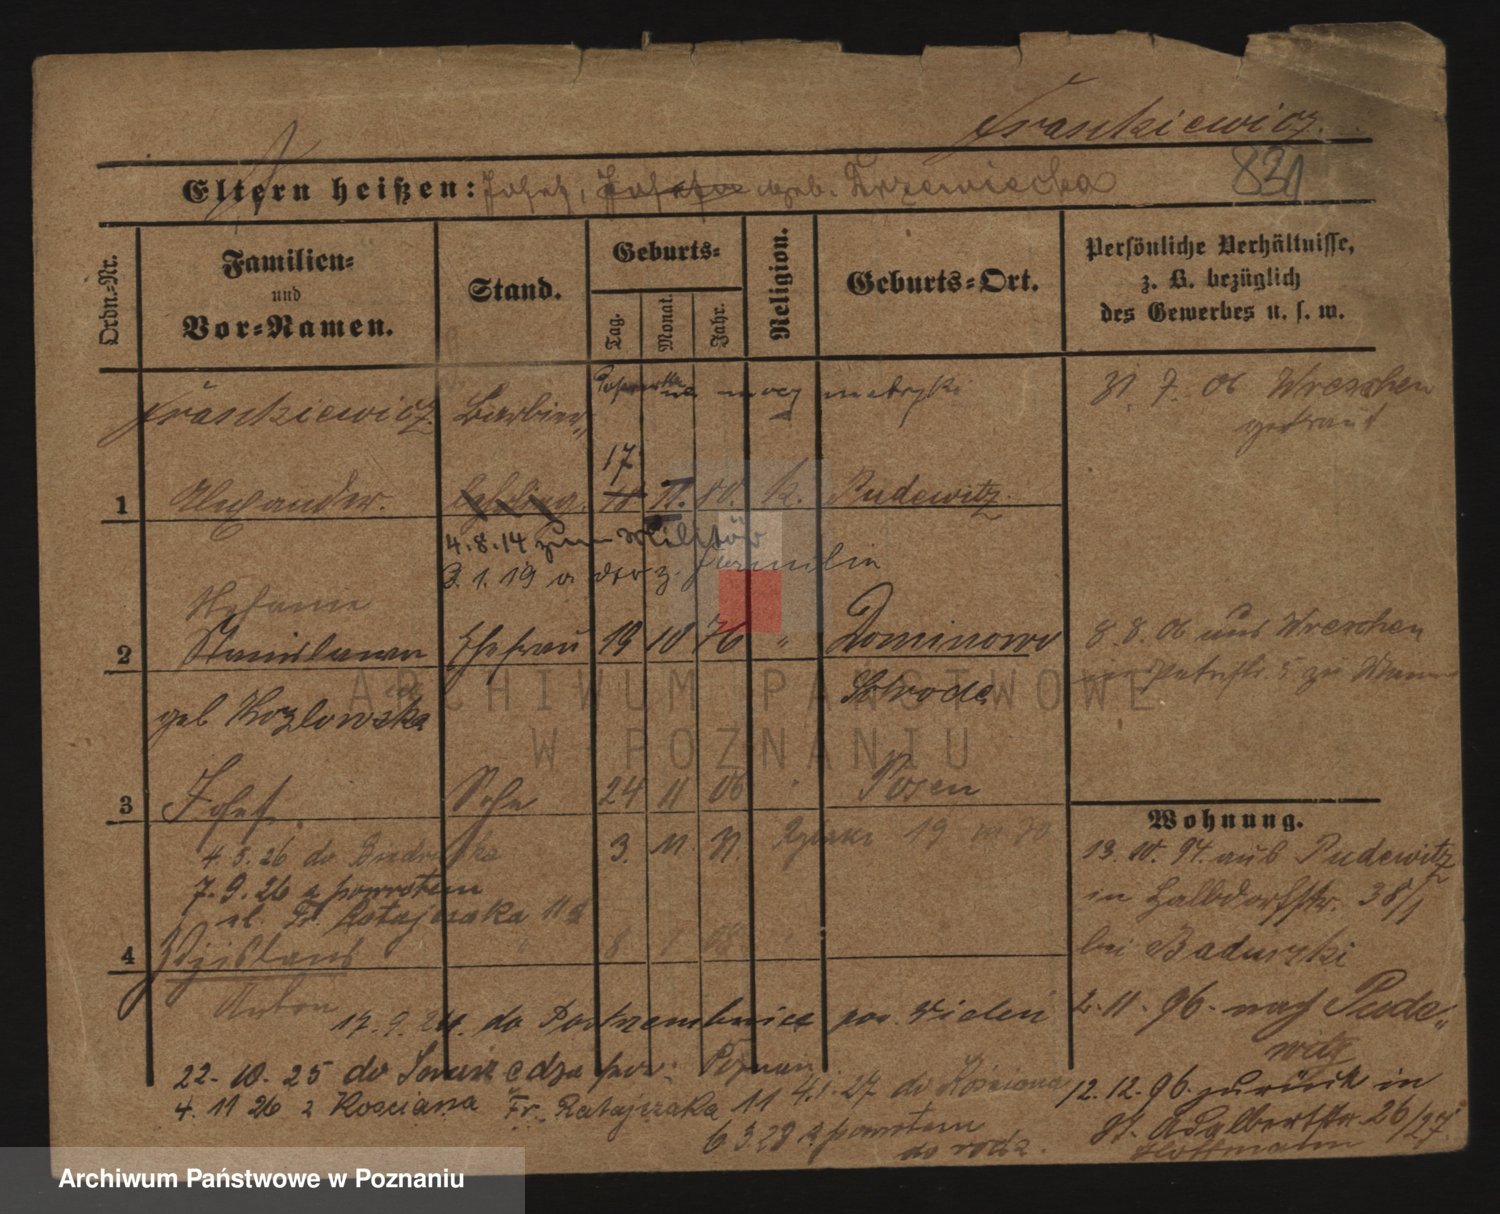 Frankiewicz.
821
Eltern heißen: Josef, Josefa geb. Drzewiecka
Ordn.-Nr.
Familien-
und
Vor-Namen.
Stand.
Geburts-
Tag.
Monat.
Jahr.
Religion.
Geburts-Ort.
Persönliche Verhältnisse,
z. B. bezüglich
des Gewerbes u. s. w.
Frankiewicz. Barbier
na mocy metryki
7. 06 Wreschen
getraut
17
1 Alexander. 18 11. 80. k. Pudewitz.
4.8.14 zum Militär
3.1.19 z. Familie
Stefanie
2 Stanislawa Ehefrau 19 10 76 " Dominowo
8.8.06 aus Wreschen
5 zu
geb Kozlowska Schroda
3 Josef Sohn 24 11 06 Posen
4.5.26 do 3. 11 19
7.9.26 z powrotem
ul. Fr. Ratajczaka 11
4 " 8
Anton
17.9.24. do pow. Wieleń
22.10.25 do pow. Poznań
4.11 26 z Kościana Fr. Ratajczaka 11 4.1.27 do Kościana
6 3 28 z powrotem
do rodz.
Wohnung.
13.10.94. aus Pudewitz
in Halbdorfstr. 38/1
bei Badurski
2.11.96. nach Pude-
witz
12.12.96. zurück in
St. Adalbertstr. 26/27
Hoffmann
ARCHIWUM PAŃSTWOWE
W POZNANIU
Archiwum Państwowe w Poznaniu